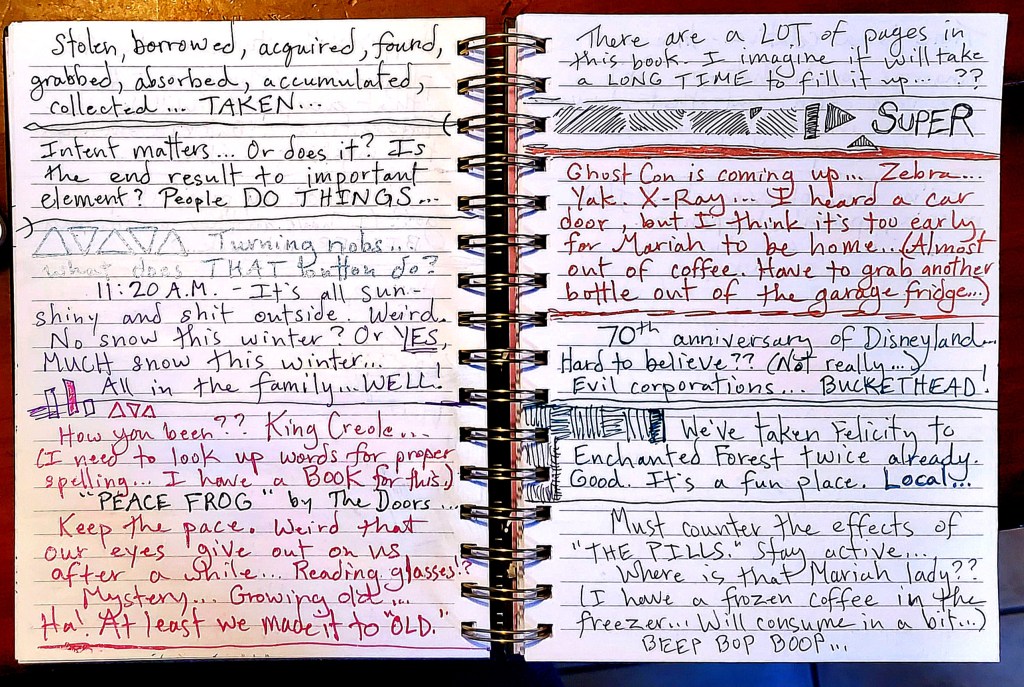 Stolen, borrowed, acquired, found,
grabbed, absorbed, accumulated,
collected... TAKEN...
Intent matters... Or does it? Is
the end result to important
element? People DO THINGS...
Turning nobs...
what does THAT button do?
11:20 A.M. - It's all sun-
shiny and shit outside. Weird.
No snow this winter? Or YES,
MUCH snow this winter...
All in the family... WELL!
How you been?? King Creole...
(I need to look up words for proper
spelling... I have a BOOK for this.)
"PEACE FROG" by The Doors...
Keep the pace. Weird that
our eyes give out on us
after a while... Reading glasses!?
Mystery... Growing old...
Ha! At least we made it to "OLD."
There are a LOT of pages in
this book. I imagine it will take
a LONG TIME to fill it up... ??
SUPER
Ghost Con is coming up... Zebra...
Yak. X-Ray... I heard a car
door, but I think it's too early
for Mariah to be home... (Almost
out of coffee. Have to grab another
bottle out of the garage fridge...)
70th anniversary of Disneyland...
Hard to believe?? (Not really...)
Evil corporations.... BUCKETHEAD!
We've taken Felicity to
Enchanted Forest twice already.
Good. It's a fun place. Local...
Must counter the effects of
"THE PILLS." Stay active...
Where is that Mariah lady??
(I have a frozen coffee in the
freezer... Will consume in a bit...)
BEEP BOP BOOP...